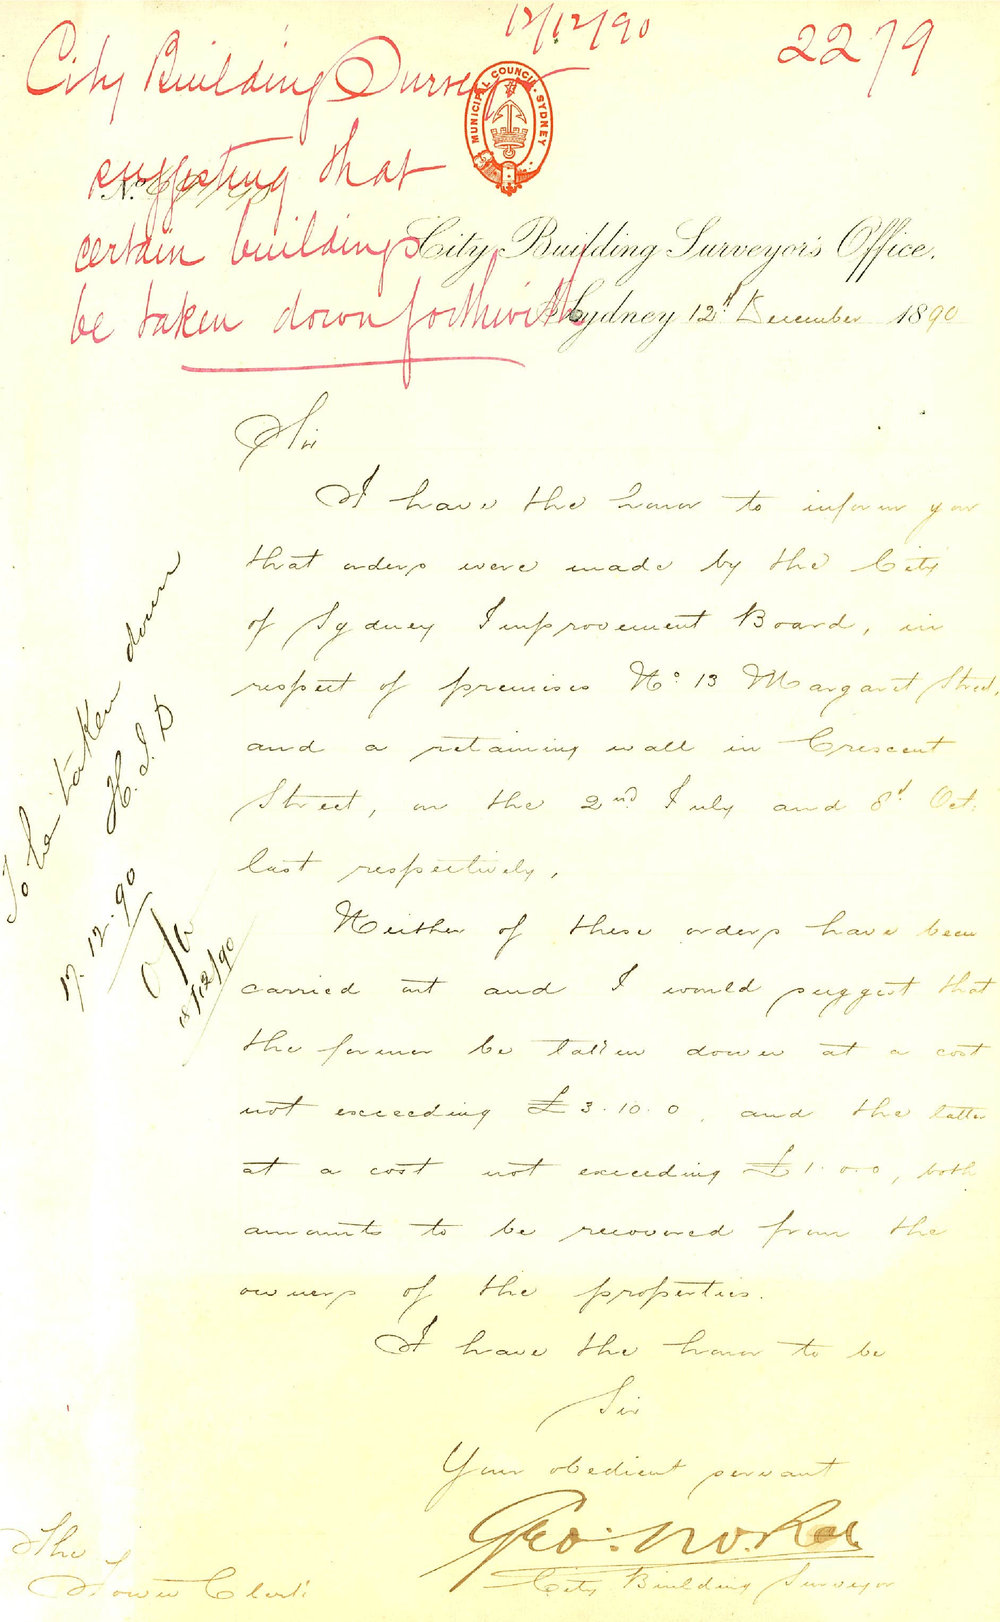 12/12/90
2279
City Building Surveyor
suggesting that
certain buildings
be taken down forthwith
MUNICIPAL COUNCIL · SYDNEY
No
City Building Surveyor's Office,
Sydney 12th December 1890
Sir
I have the honor to inform you
that orders were made by the City
of Sydney Improvement Board, in
respect of premises No: 13 Margaret Street,
and a retaining wall in Crescent
Street, on the 2nd July and 8th Oct:
last respectively.
Neither of these orders have been
carried out and I would suggest that
the former be taken down at a cost
not exceeding £3.10.0, and the latter
at a cost not exceeding £1.0.0, both
amounts to be recovered from the
owners of the properties.
I have the honor to be
Sir
Your obedient servant
Geo:
City Building Surveyor
The
Town Clerk:
To be taken down
17.12.90
18/12/90